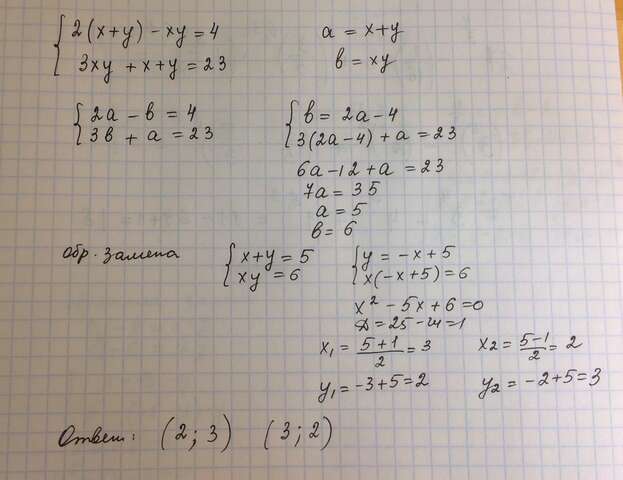 2(x+y) - xy = 4 a = x+y
3xy + x+y = 23 b = xy
2a - b = 4 b = 2a-4
3b + a = 23 3(2a-4) + a = 23
6a-12+a = 23
7a = 35
a = 5
b = 6
Обр. замена x+y = 5 y = -x+5
xy = 6 x(-x+5) = 6
x² - 5x + 6 = 0
D = 25-24 = 1
x₁ = (5+1)/2 = 3 x₂ = (5-1)/2 = 2
y₁ = -3+5 = 2 y₂ = -2+5 = 3
Ответ: (2; 3) (3; 2)